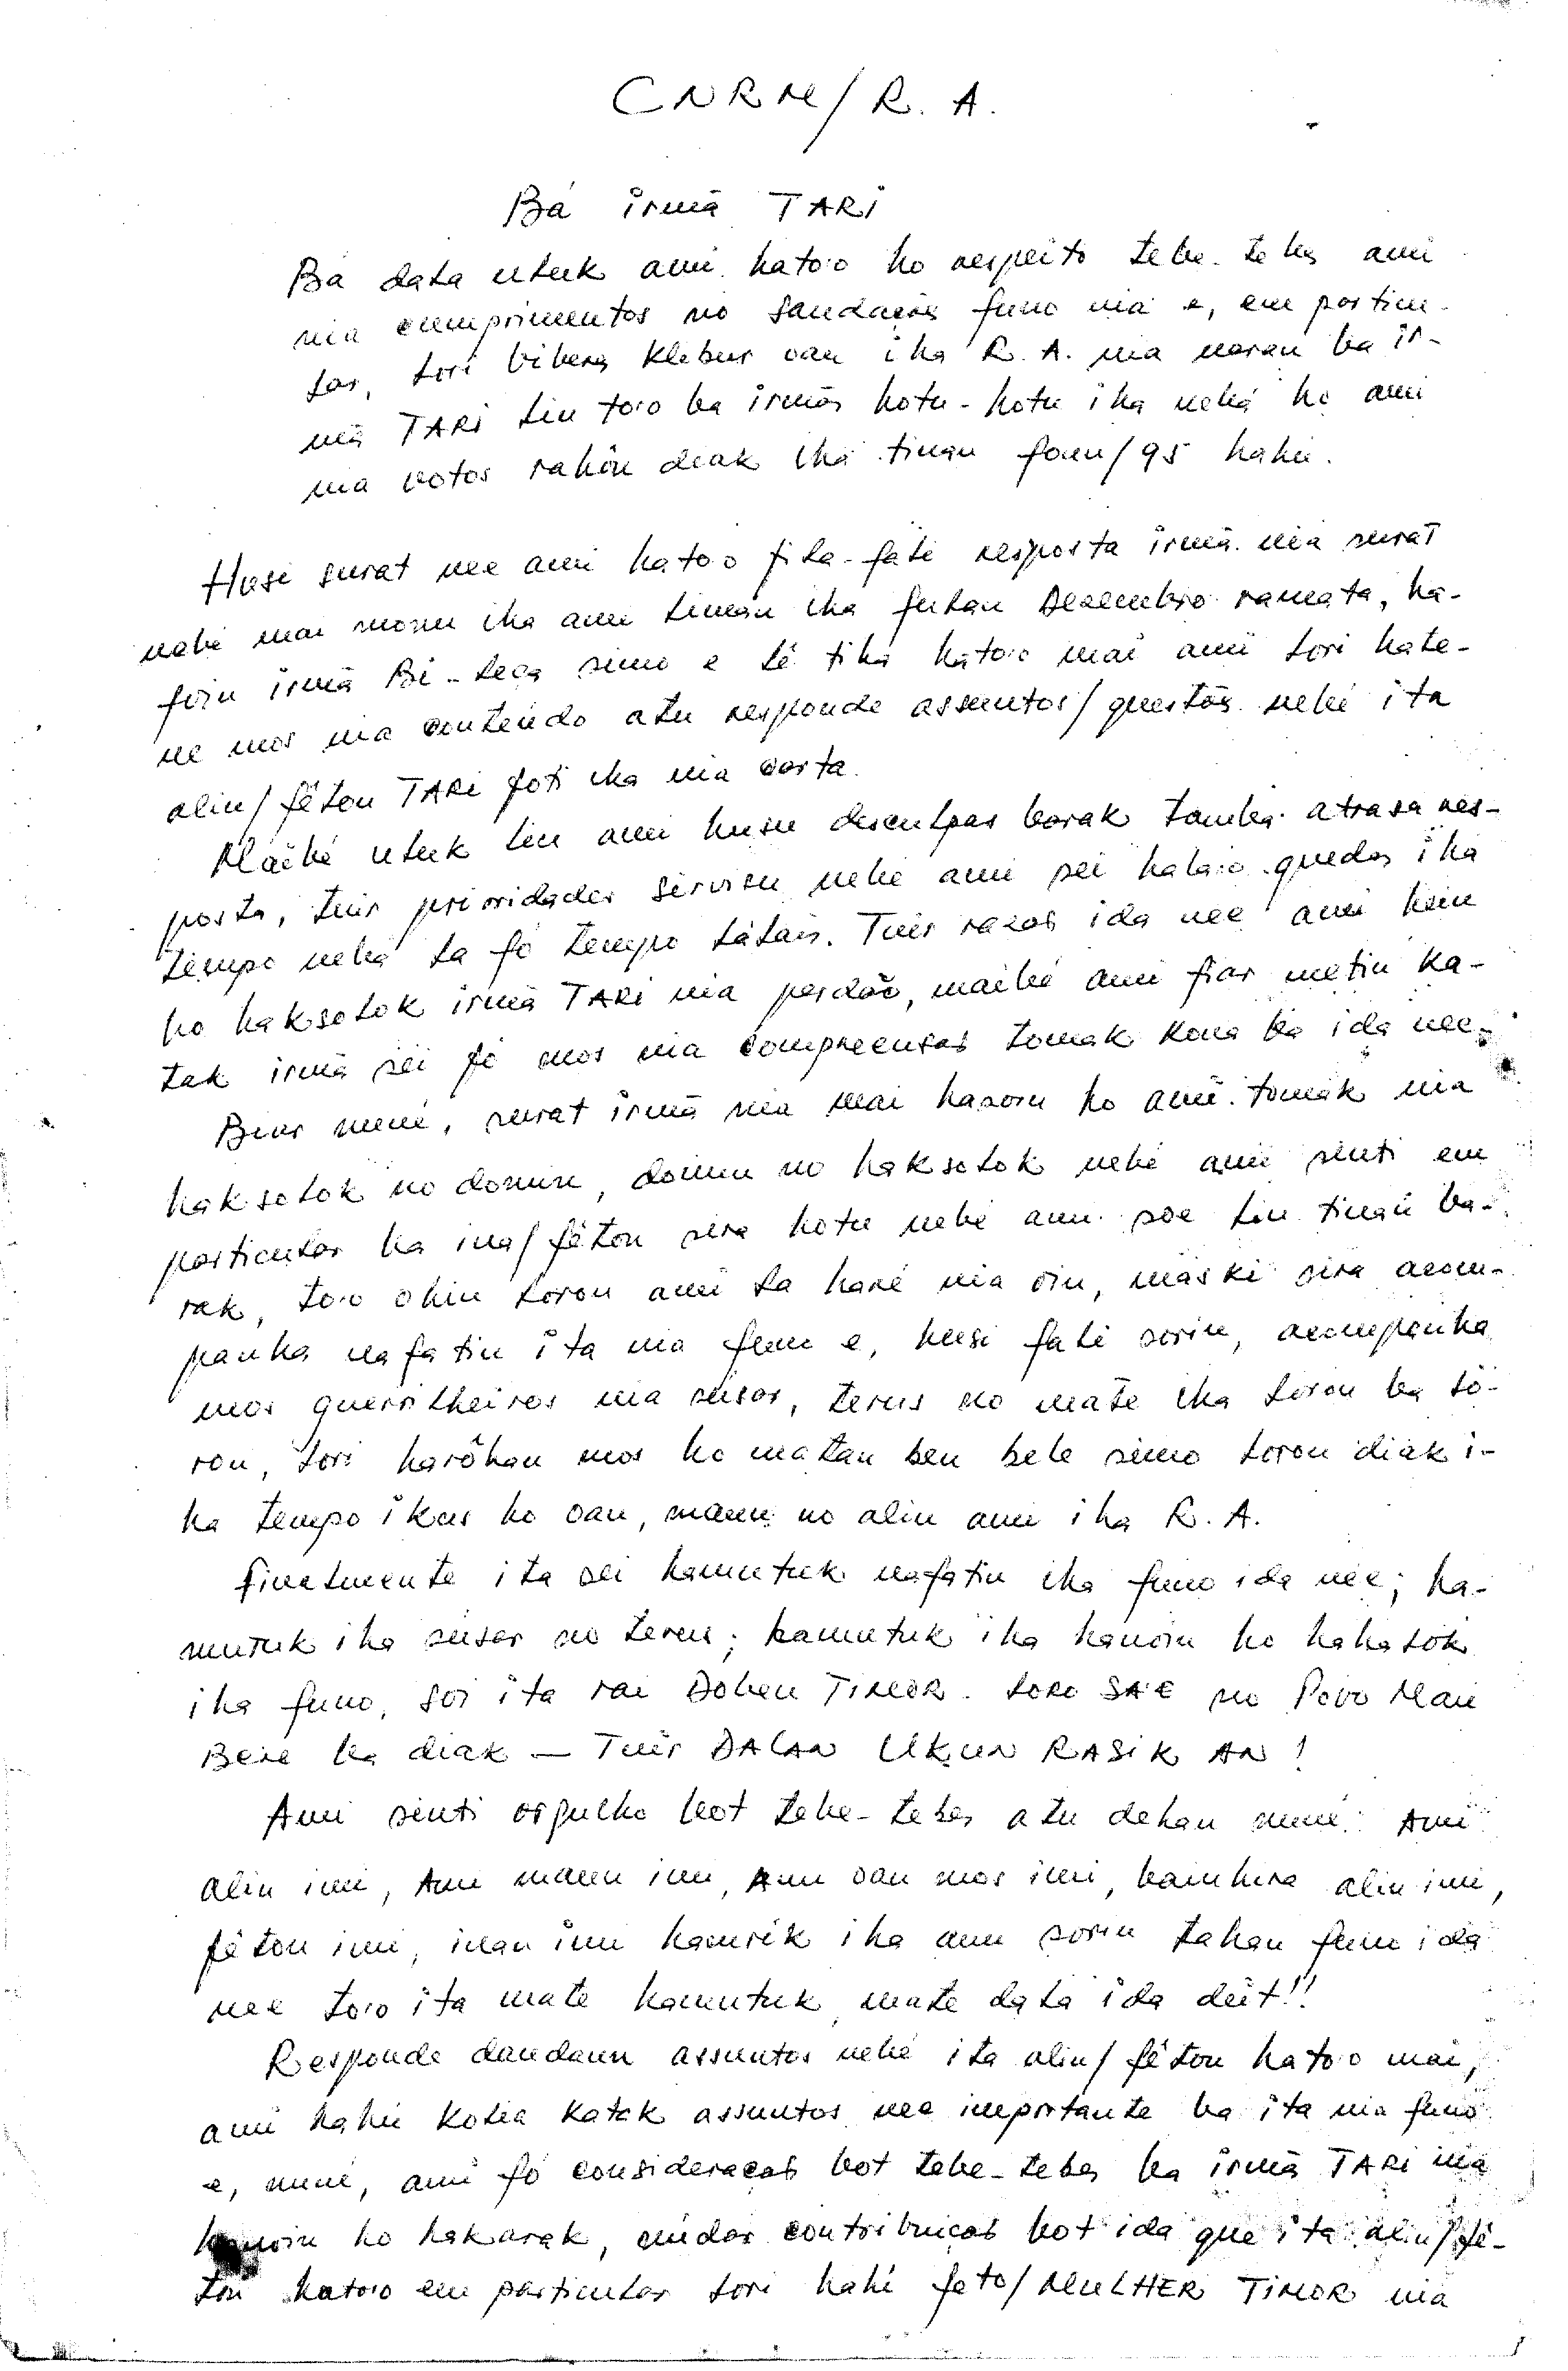 CNRM/R. A.
Bá irmã TARI
Ba dala uluk ami hato'o ho respeito tebe-tebes ami
nia cumprimentos no saudações funo nia e, em particu-
lar, lori biberes klibur oan iha R. A. nia naran ba ir-
mã TARI liu to'o ba irmãs hotu-hotu iha nebá ho ami
nia votos rahûn diak iha tinan foun/95 hahu.
Husi surat nee ami hato'o fila-fali resposta irmã nia surat
nebé mai monu iha ami liman iha fulan Dezembro ramata, ha-
foin irmã Bi-Leça simo e lê tiha hato'o mai ami lori hate-
ne mos nia conteúdo atu responde assuntos/questões nebé ita
alin/fêton TARI foti iha nia carta.
Maibé uluk liu ami husu desculpas barak tamba atrasa res-
posta, tuir prioridades servisu nebé ami sei hala'o quedas iha
tempo nebá la fó tempo lálais. Tuir razaõ ida nee ami hein
ho haksolok irmã TARI nia perdão, maibé ami fiar metin ka-
tak irmã sei fó mos nia compreensaõ tomak kona ba ida nee.
Beur nuné, surat irmã nia mai hasoru ho ami tomak nia
haksolok no domin, domin no haksolok nebé ami senti em
particular ba ina/fêton sira hotu nebé ami soe liu tinan ba-
rak, to'o ohin loron ami la haré nia oin, máski sira acom-
panha nafatin ita nia funu e, husi fali sorin, acompanha
mos guerrilheiros nia susar, terus no mate iha loron ba lo-
ron, lori harôhan mos ho matan ben bele simo loron diak i-
ha tempo ikus ho oan, maun no alin ami iha R. A.
Finalmente ita sei hamutuk nafatin iha funo ida nee; ha-
mutuk iha susar no terus; hamutuk iha hanoin ho hahalok
iha funo, soi ita rai Doben TIMOR LORO SA'E no Povo Mau
Bere ba diak — Tuir DALAN UKUN RASIK AN!
Ami senti orgulho bot tebe-tebes atu dehan nuné: Ami
alin imi, Ami maun imi, Ami oan mos imi, bainhira alin imi,
fêton imi, inan imi hamrik iha ami sorin tahan funu ida
nee to'o ita mate hamutuk, mate dala ida deit!!
Responde daudaun assuntos nebé ita alin/fêton hato'o mai,
ami hahu kolia katak assuntos nee importante ba ita nia funo
e, nuné, ami fó consideraçaõ bot tebe-tebes ba irmã TARI nia
hanoin ho hakarak, nudar contribuiçaõ bot ida que ita alin/fê-
ton hato'o em particular lori hahi feto/MULHER TIMOR nia